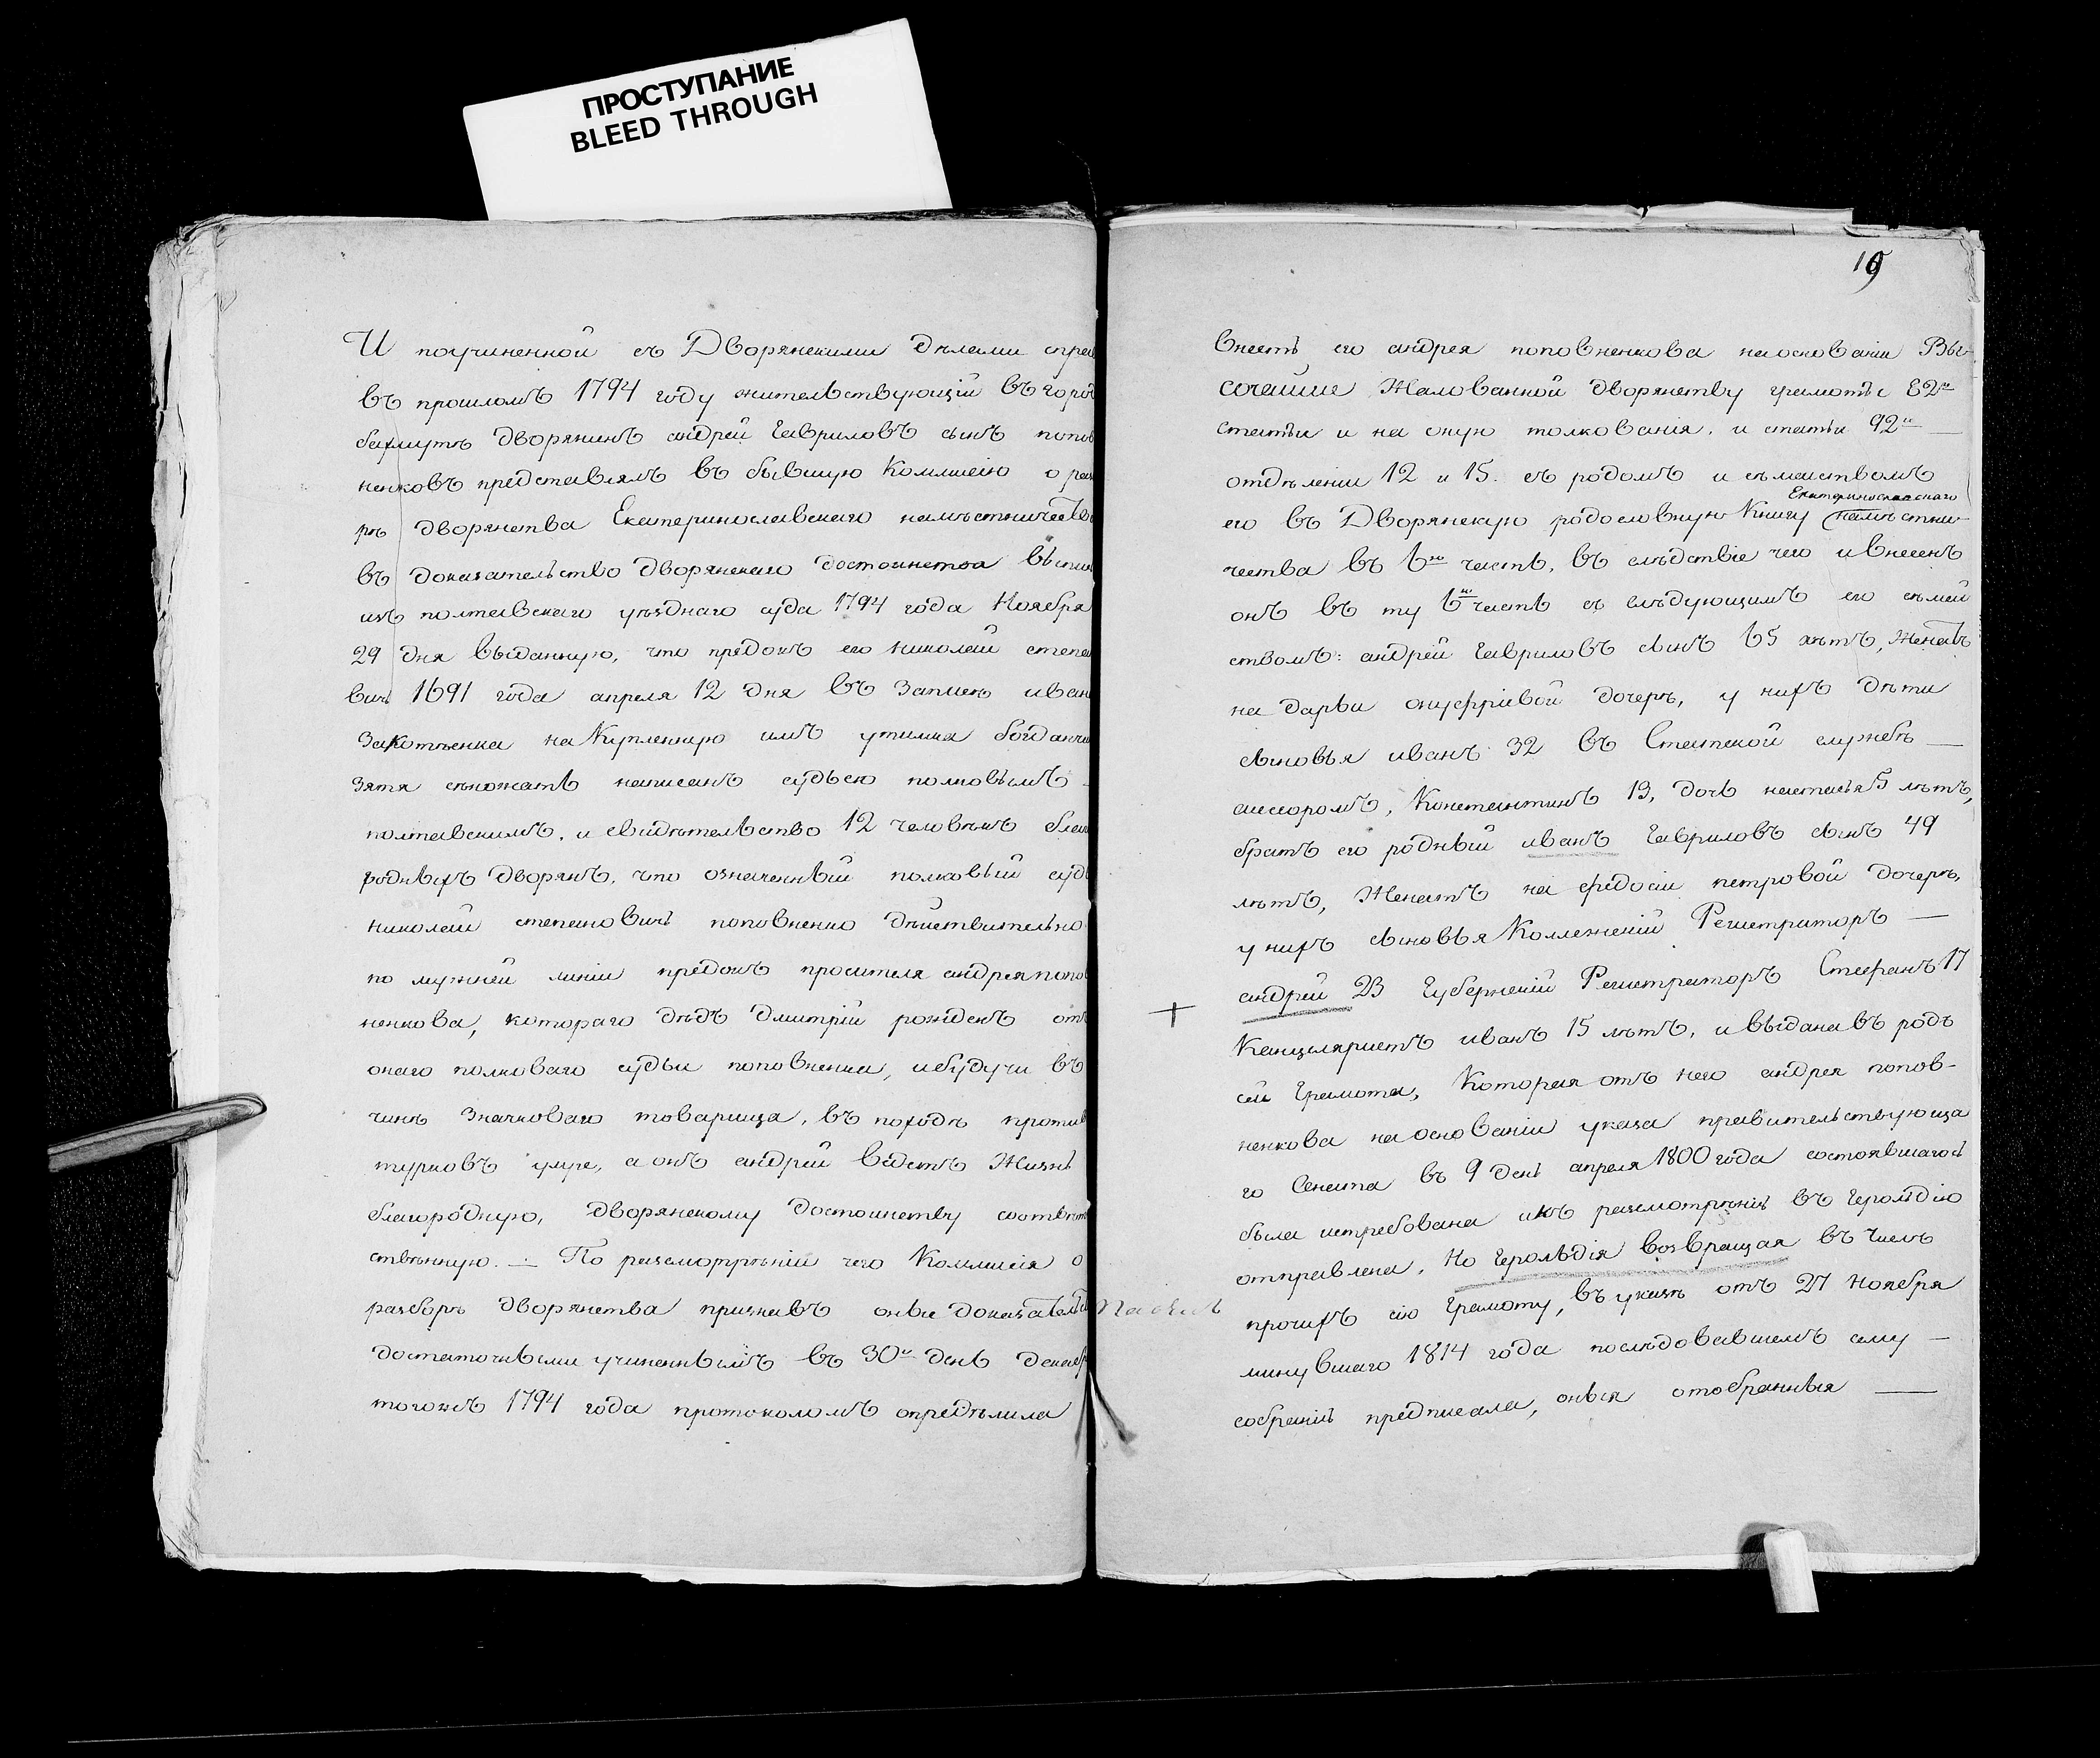 ПРОСТУПАНИЕ
BLEED THROUGH
И поучиненной съ Дворянскими дѣлами справ
въ прошломъ 1794 году жительствующій въ город
бахмутѣ дворянинъ андрей гавриловъ сынъ попов
ненковъ представлялъ въ бывшую Коммисію о раз
рѣ дворянства Екатеринославскаго намѣстничеств
въ доказательство дворянскаго достоинства выпис
изъ полтавскаго уѣзднаго суда 1794 года Ноября
29 дня выданную, что предокъ его николай степан
вичь 1691 года апреля 12 дня въ записѣ иван
на Купленную имъ утимка богданчен
зятя сѣножать написанъ судьею полковымъ
полтавскимъ, и свидѣтельство 12 человѣкъ благ
родныхъ дворянъ, что означенный полковый судь
николай степановичь поповненко дѣйствительно
по мужней линіи предокъ просителя андрея попов
ненкова, котораго дѣдъ дмитрій рожденъ отъ
онаго полковаго судьи поповненка, ибудучи въ
чинѣ значковаго товарища, въ походѣ против
турковъ умре, а онъ андрей ведетъ Жизнь
благородную, дворянскому достоинству соотвѣт
ственную. — По разсмотрѣніи чего Коммисія о
разборѣ дворянства признавъ оные доказательст
достаточными учиненнымъ въ 30й день декабр
тогожъ 1794 года протоколомъ опредѣлила
19
Внесть его андрея поповненкова наоснованіи Вы-
сочайше Жалованной дворянству грамотѣ 82й
статьи и на оную толкованія, и статьи 92й —
отдѣленіи 12 и 15. съ родомъ и съмействомъ
Екатеринославскаго
его въ Дворянскую родословную Книгу намѣстни-
чества въ 6ю часть, въ слѣдствіе чего и внесенъ
онъ въ ту 6ю часть съ слѣдующимъ его съмей
ствомъ: андрей гавриловъ сынъ 65 лѣтъ, женатъ
на дарьи онуфріевой дочерѣ, у нихъ дѣти
сыновья иванъ 32 въ Статской службѣ —
ассесоромъ, Константинъ 13, дочь настасья 5 лѣтъ,
братъ его родный иванъ гавриловъ сынъ 49
лѣтъ, Женатъ на федосіи петровой дочерѣ,
у нихъ сыновья Коллежскій Регистраторъ —
андрей 23 Губернскій Регистраторъ Стефанъ 17
+
Канцляристъ иванъ 15 лѣтъ, и выдана въ родъ
сей Грамота, Которая отъ него андрея попов-
ненкова на основаніи указа правительствующа
го Сената въ 9 день апреля 1800 года состоявшагось
была истребована икъ разсмотрѣнію въ герольдію
отправлена, Но герольдія возвращая въ числѣ
прочихъ сію Грамоту, въ указѣ отъ 27 Ноября
минувшаго 1814 года последовавшемъ сему —
собранію предписала, оныя отобранныя —